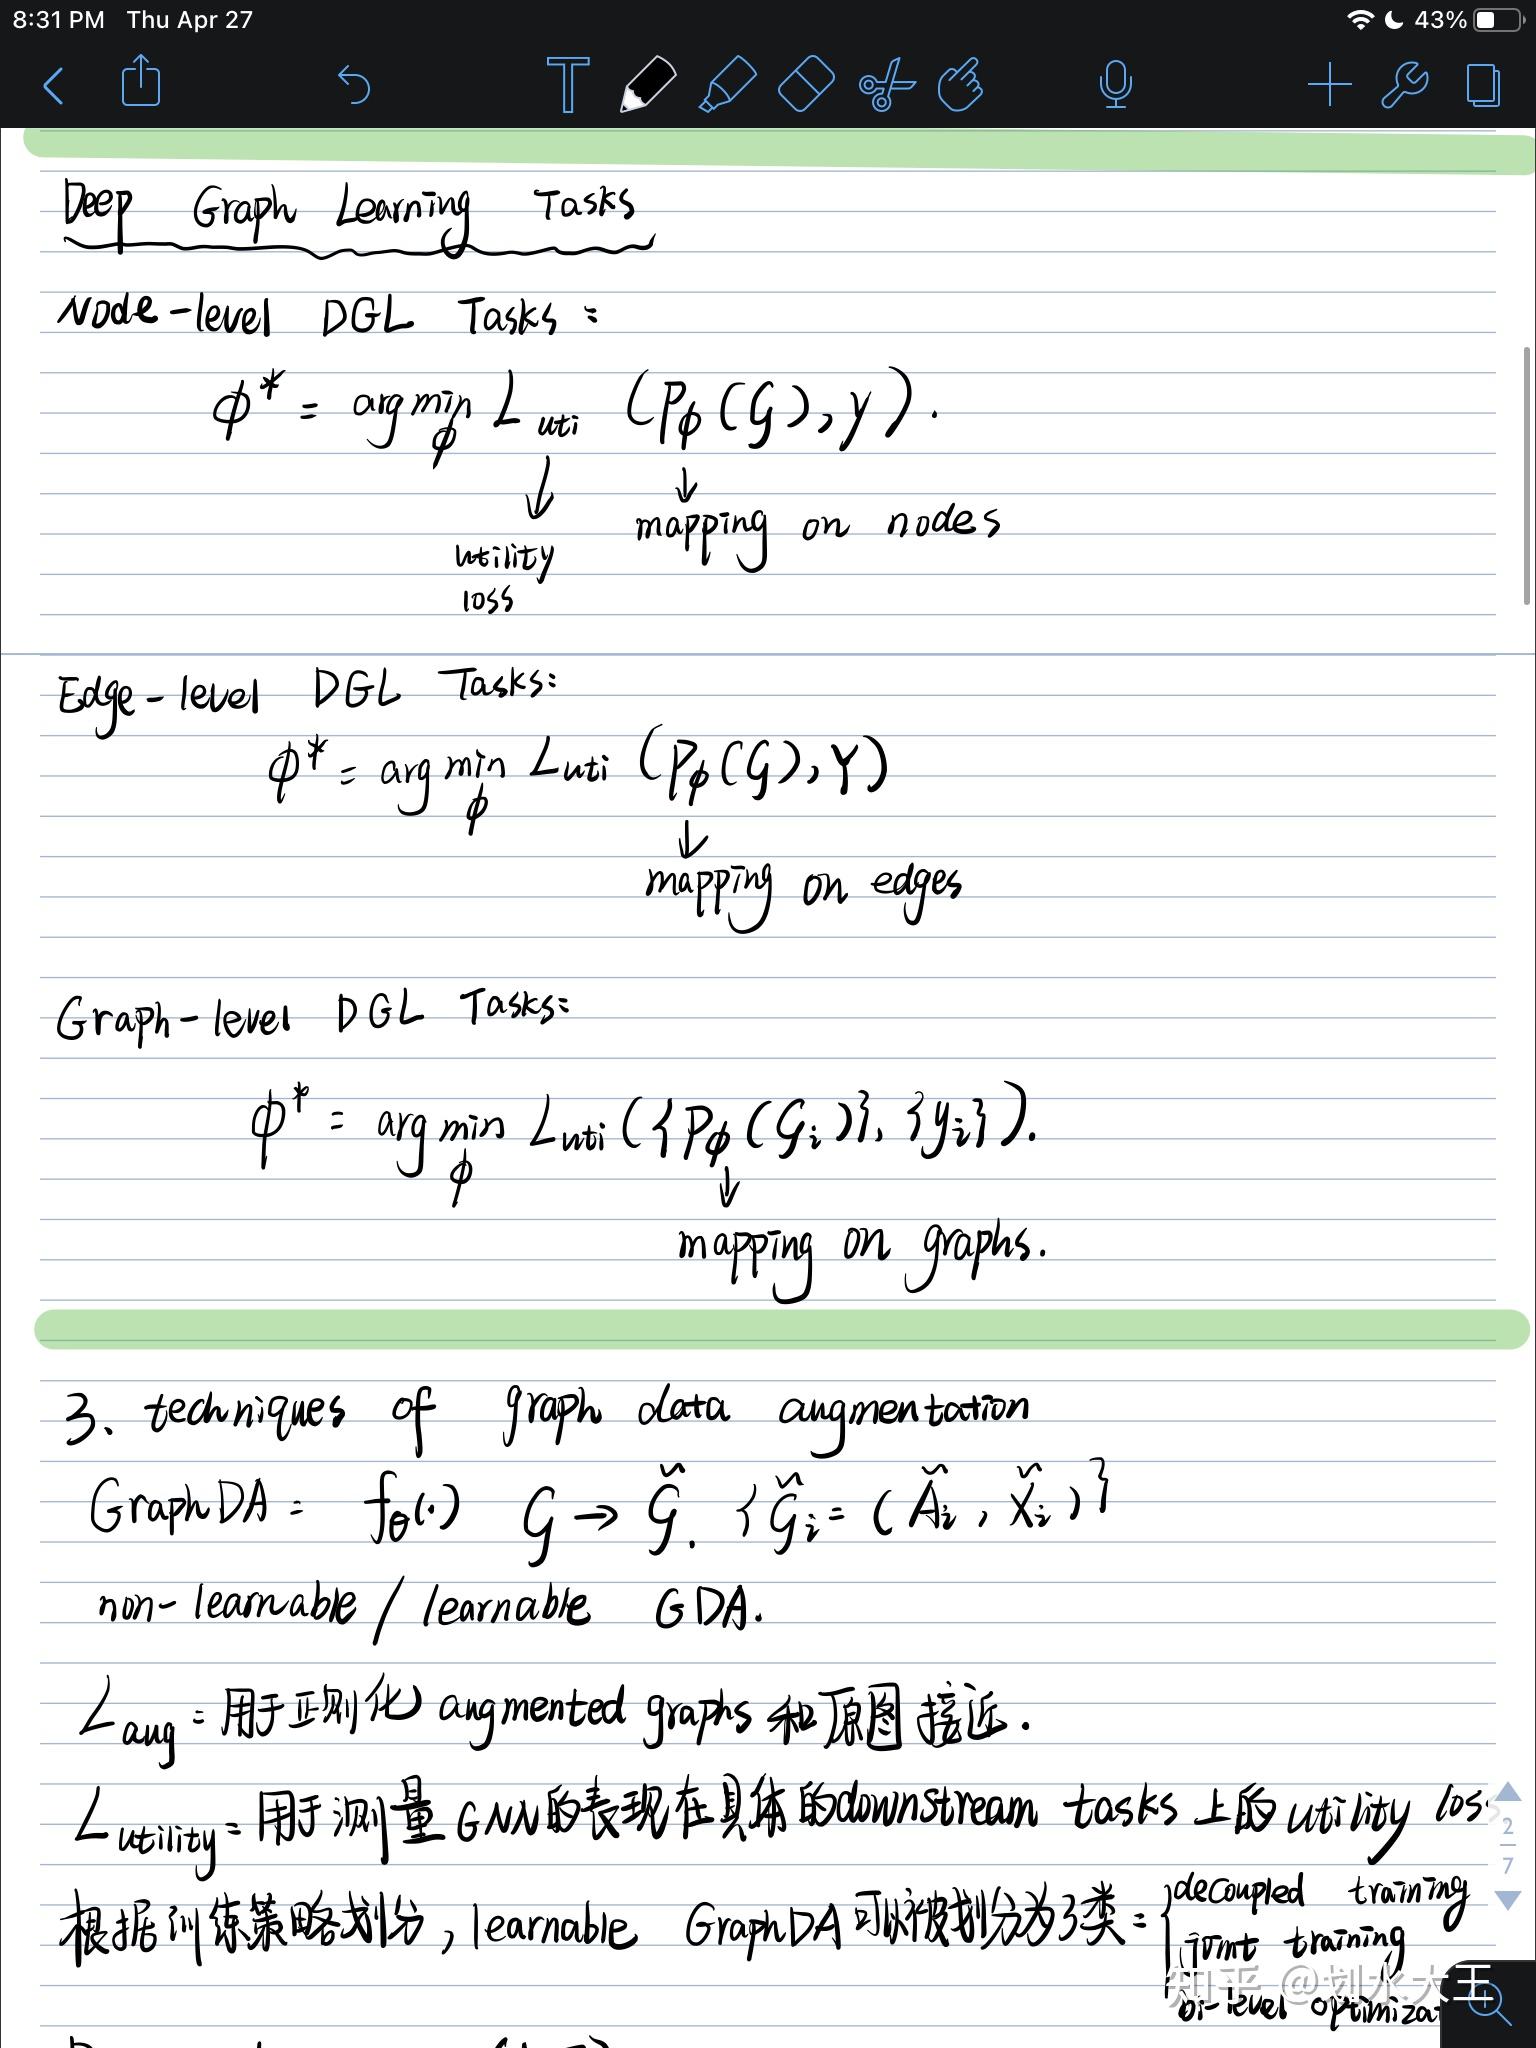 8:31 PM Thu Apr 27 43%
Deep Graph Learning Tasks
Node-level DGL Tasks:
φ* = arg min_φ L_uti (P_φ(G), y).
↓ ↓
mapping on nodes
utility
loss
Edge-level DGL Tasks:
φ* = arg min_φ L_uti (P_φ(G), Y)
↓
mapping on edges
Graph-level DGL Tasks:
φ* = arg min_φ L_uti ({P_φ(G_i)}, {y_i}).
↓
mapping on graphs.
3、techniques of graph data augmentation
GraphDA: f_θ(·) G → G̃. {G̃_i = (Ã_i, X̃_i)}
non-learnable / learnable GDA.
L_aug: 用于正则化 augmented graphs 和原图接近.
L_utility: 用于测量GNN的表现在具体的downstream tasks 上的 utility loss
2
7
根据训练策略划分, learnable GraphDA 可以被划分为3类: { decoupled training
joint training
bi-level optimizat
知乎 @划水大王